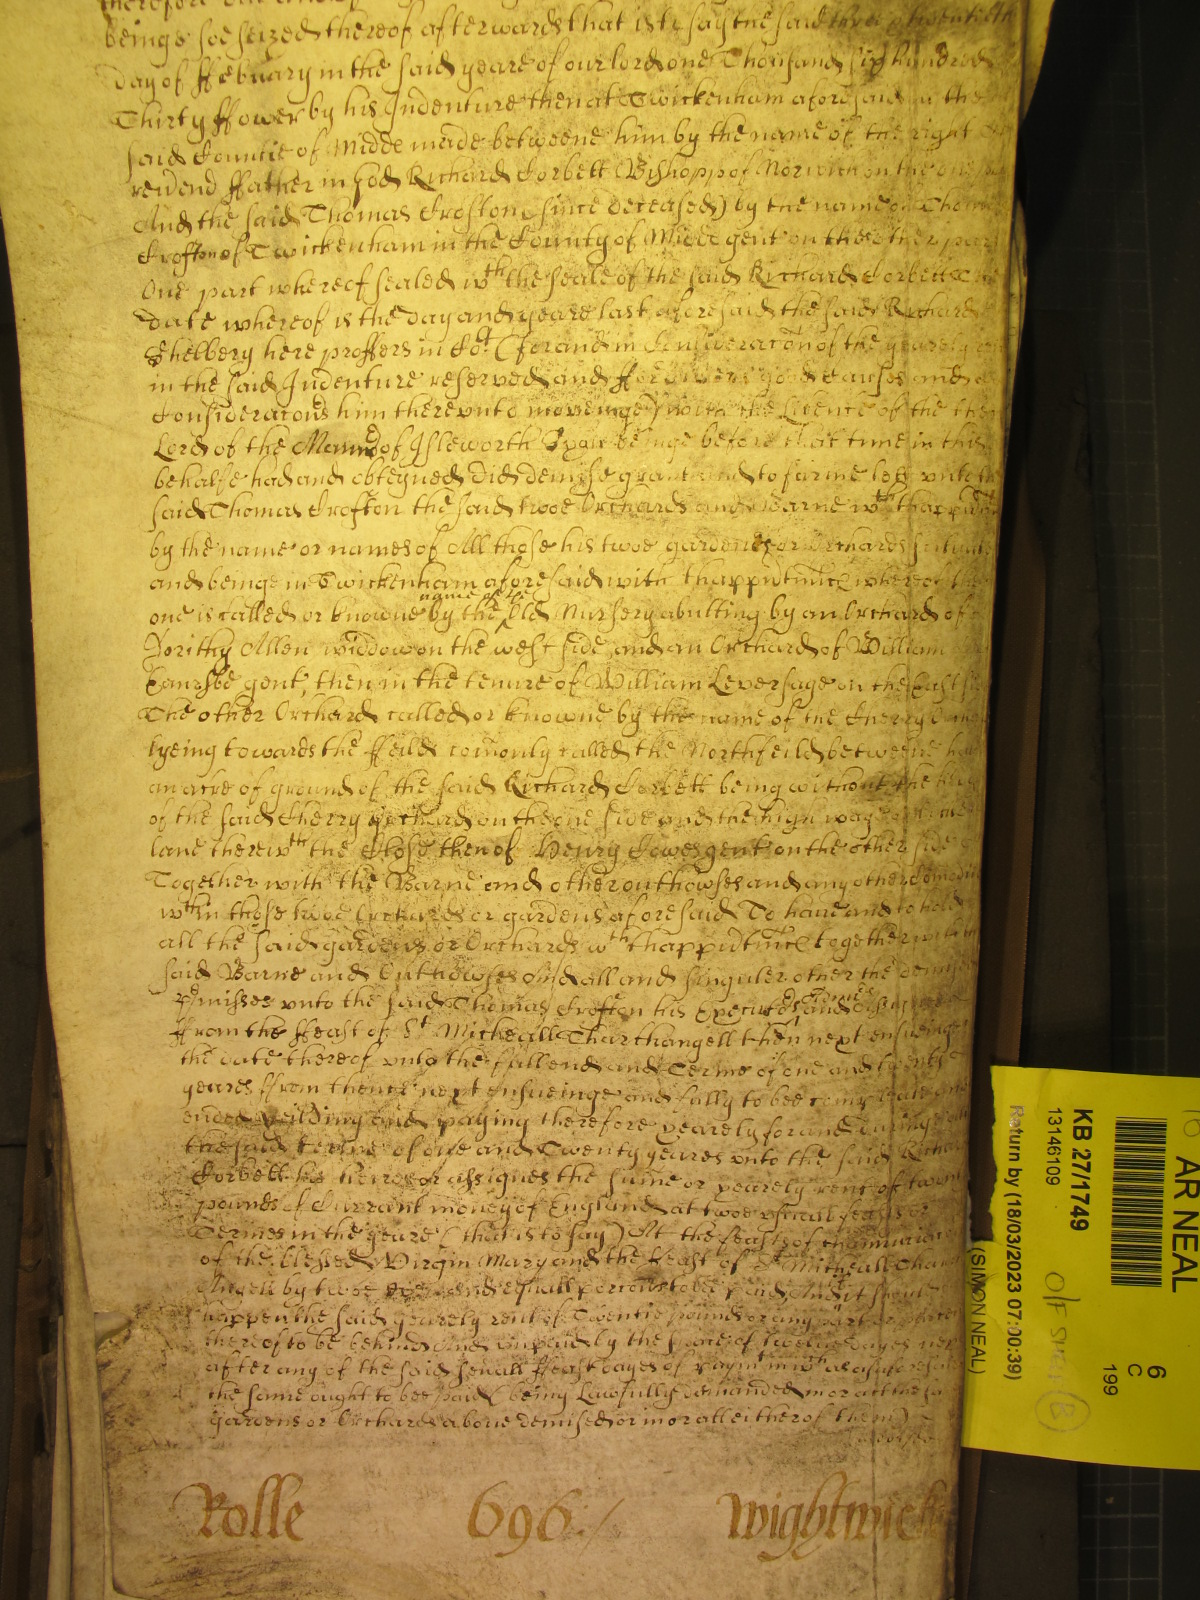 therefore
beinge soe seized thereof afterwards that is to say the said three & twentieth
day of ffebruary in the said yeare of our lord one Thousand six hundred
Thirty ffower by his Indenture then at Twickenham aforesaid in the
said Countie of Midd made betweene him by the name of the right
reverend ffather in God Richard Corbett Bishopp of Norwich on the one
And the said Thomas Crofton (since deceased) by the name of Thomas
Crofton of Twickenham in the County of Midd gent on the other part
One part whereof sealed wth the seale of the said Richard Corbett The
date whereof is the day and yeare last aforesaid the said Richard
Shelbery here proffers in Cort (for and in Consideracon of the yearely
in the said Indenture reserved and for divers good causes and
Consideracons him therevnto moveinge) with the Licence of the then
Lord of the Mannor of Isleworth Syon beinge before that time in this
behalfe had and obteyned did demise grant and to farme lett vnto the
said Thomas Crofton the said twoe Orchards and Barne wth thapp
by the name or names of All those his twoe gardens or Orchards scituate
and beinge in Twickenham aforesaid with thappurtnncs whereof the
one is called or knowne by the name of the Old Nursery abutting by an Orchard of
Dorithy Allen widdow on the west side and an Orchard of William
gent, then in the tenure of William Leversage on the East side
The other Orchard called or knowne by the name of the Cherry
lyeing towards the ffeild comonly called the Northfeild betweene
an acre of ground of the said Richard Corbett being without the
of the said Cherry Orchard on the one side and the high way
lane there wth the Close then of Henry gent on the other side
Together with the Barne and other outhowses and any other
wthin those twoe Orchards or gardens aforesaid To have and to hold
all the said gardens or Orchards wth thappurtnncs together with
said Barne and Outhowses And all and singuler other the
pmisses vnto the said Thomas Crofton his Executors and
ffrom the ffeast of St Michaell Tharchangell then next ensueinge
the date thereof vnto the full end and Terme of one and twenty
yeares ffrom thence next ensueinge and fully to bee compleate and
ended yeilding and paying therefore yearely for and dureing
the said terme of one and Twenty yeares vnto the said Richard
Corbett his heires or assignes the sume or yearely rent of
pounds of Currant money of England at twoe vsuall feasts or
Termes in the yeare (that is to say) Att the feasts of
of the blessed Virgin Mary and the ffeast of St Michaell
Angell by twoe even and equall porcons to bee paid And it
happen the said yearely rent of Twentie pounds or any part or
thereof to be behind and vnpaid by the space of twelve dayes next
after any of the said feast dayes of paymt in wch as aforesaid
the same ought to bee paid (being Lawfully demanded in or att the
gardens or Orchards above demised or in or att either of them)
Rolle 696 Wightwick
AR NEAL
6
C
199
KB 27/1749
13146109
Return by (18/03/2023 07:00:39)
(SIMON NEAL)